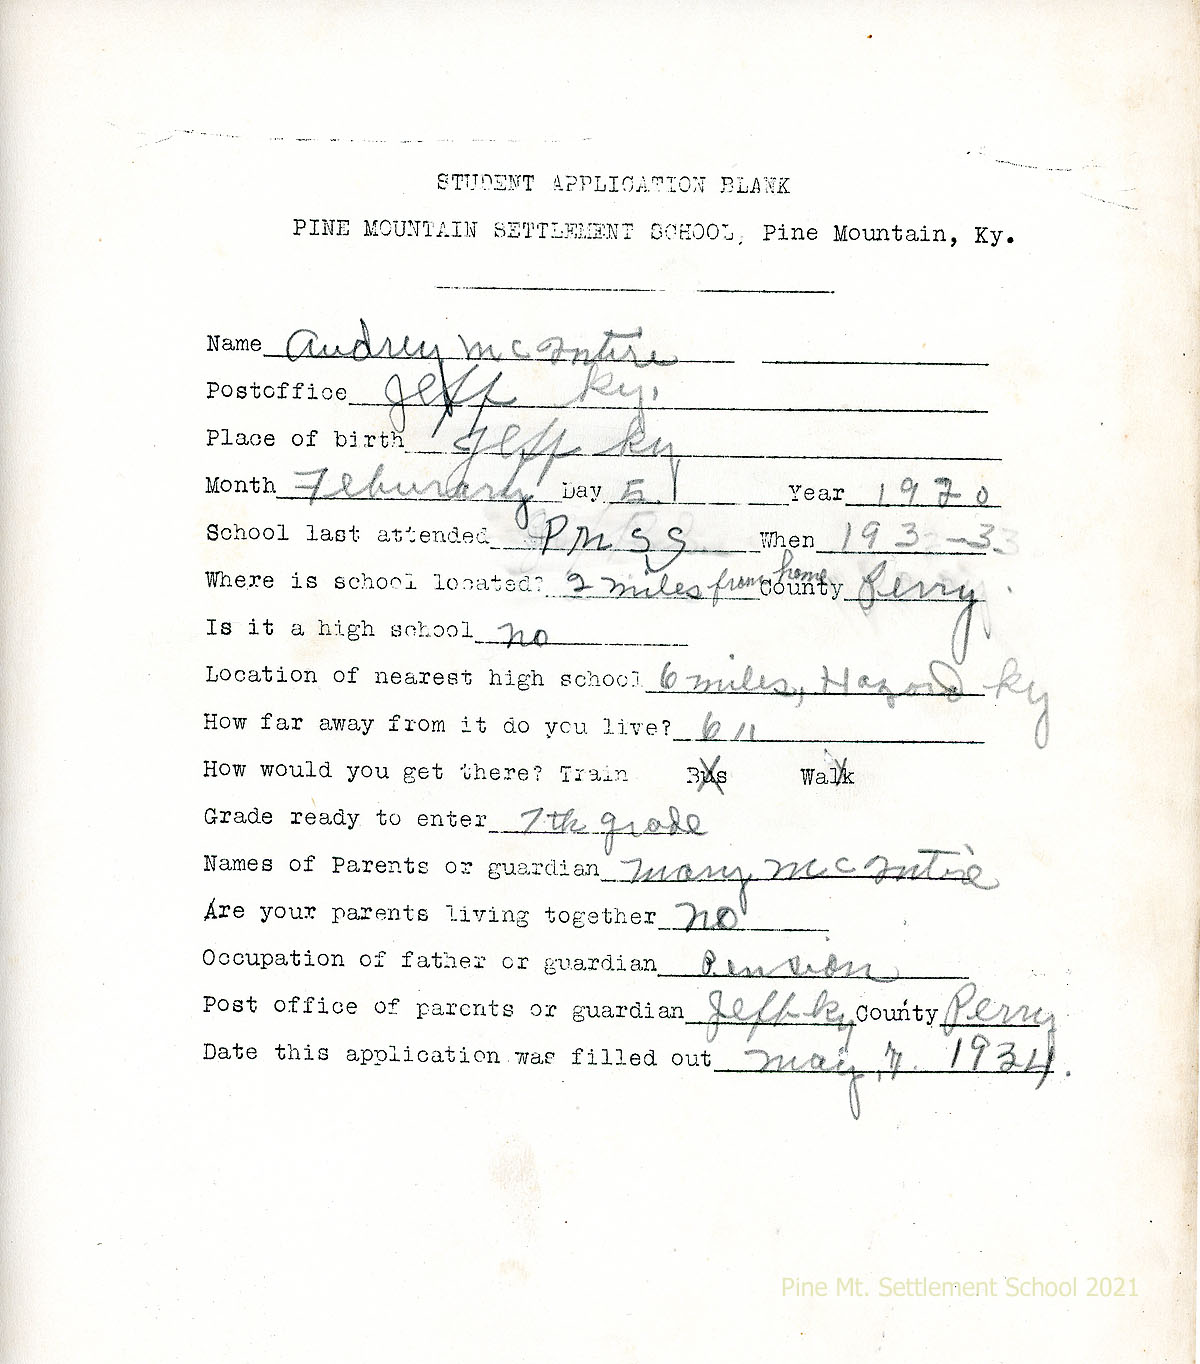 STUDENT APPLICATION BLANK
PINE MOUNTAIN SETTLEMENT SCHOOL, Pine Mountain, Ky.
Name Audrey McIntire
Postoffice Jeff Ky.
Place of birth Jeff Ky
Month Feburary Day 5 Year 1920
School last attended PMSS When 193 -3
Where is school located? 2 miles from home County Perry
Is it a high school no
Location of nearest high school 6 miles, Hazard Ky
How far away from it do you live? 6 "
How would you get there? Train Bus Walk
Grade ready to enter 7th grade
Names of Parents or guardian Mary McIntire
Are your parents living together no
Occupation of father or guardian Pension
Post office of parents or guardian Jeff Ky County Perry
Date this application was filled out May, 7. 1934.
Pine Mt. Settlement School 2021